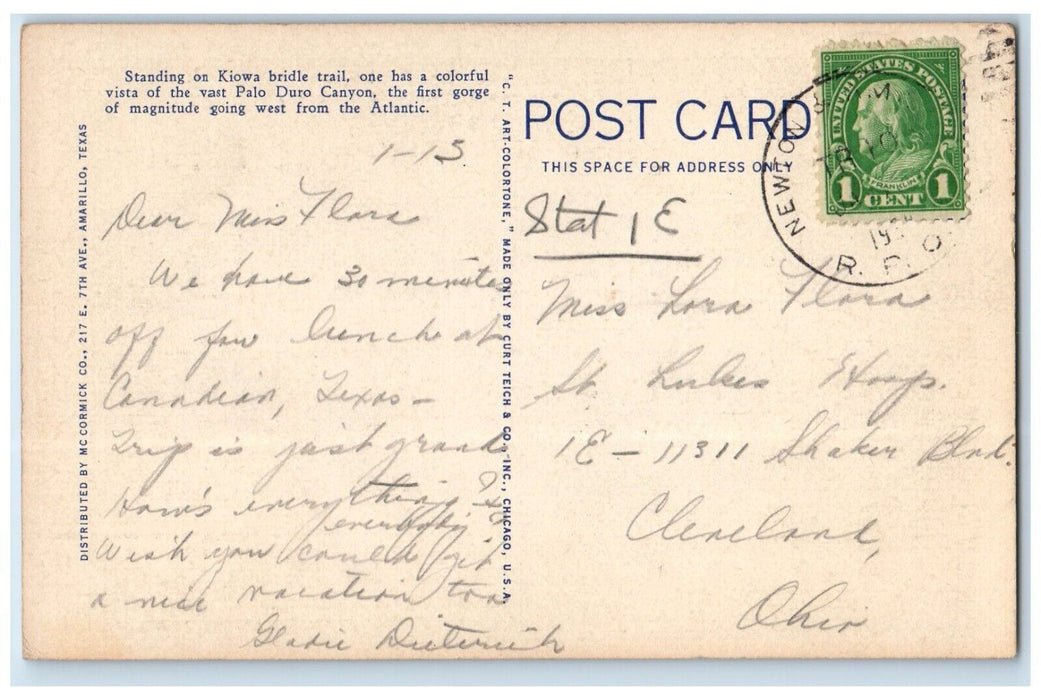 Standing on Kiowa bridle trail, one has a colorful
vista of the vast Palo Duro Canyon, the first gorge
of magnitude going west from the Atlantic.
1-13
Dear Miss Flora
We have 30 minutes
off for lunch at
Canadian, Texas -
Trip is just grand
How's everything &
everybody?
Wish you could get
a nice vacation too
Gladie Dieterich
DISTRIBUTED BY MCCORMICK CO., 217 E. 7TH AVE., AMARILLO, TEXAS
"C. T. ART-COLORTONE," MADE ONLY BY CURT TEICH & CO., INC., CHICAGO, U.S.A.
POST CARD
THIS SPACE FOR ADDRESS ONLY
UNITED STATES POSTAGE
FRANKLIN
1 CENT 1
NEWTON &
R. P. O.
Stat 1 E
Miss Lora Flora
St Lukes Hosp.
1E - 11311 Shaker Blvd.
Cleveland,
Ohio